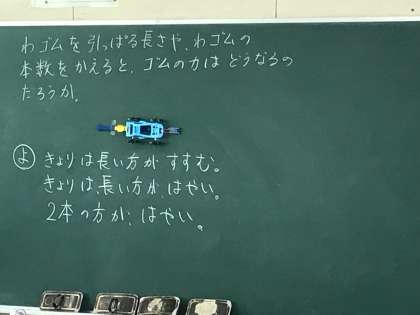 わゴムを引っぱる長さや、わゴムの
本数をかえると、ゴムの力は どうなるの
だろうか。
よ きょりは長い方が すすむ。
きょりは、長い方が、はやい。
2本の方が、はやい。